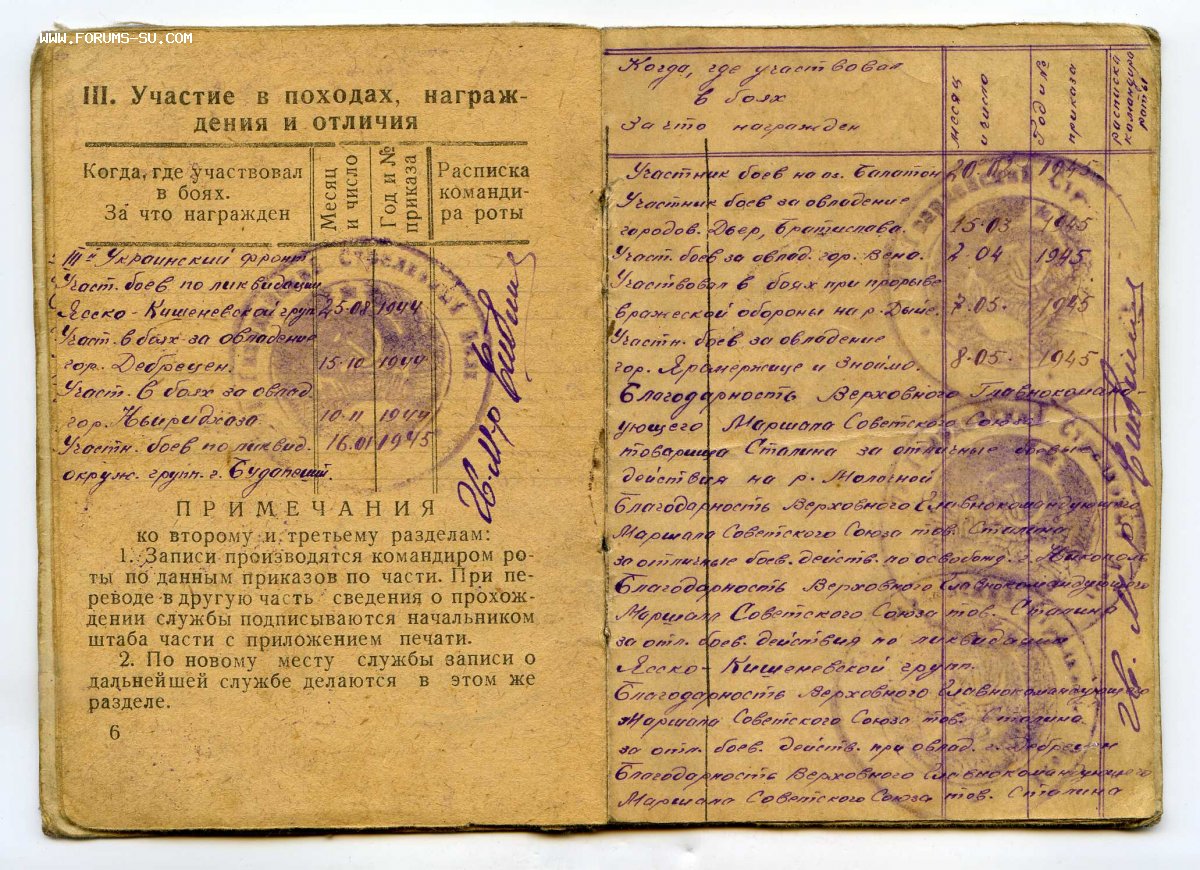 www.forums-su.com
III. Участие в походах, награж-
дения и отличия
Когда, где участвовал
в боях.
За что награжден
Месяц
и число
Год и №
приказа
Расписка
команди-
ра роты
III й Украинский фронт
Участ. боев по ликвидации
Ясско-Кишеневской груп. 25.08 1944
Участ. в боях за овладение
гор. Дебрецен. 15.10 1944
Участ. в боях за овлад.
гор. Ньиридхаза 10.11 1944
Участн. боев по ликвид. 16.01 1945
окруж. групп. г. Будапешт.
ПРИМЕЧАНИЯ
ко второму и третьему разделам:
1. Записи производятся командиром ро-
ты по данным приказов по части. При пе-
реводе в другую часть сведения о прохож-
дении службы подписываются начальником
штаба части с приложением печати.
2. По новому месту службы записи о
дальнейшей службе делаются в этом же
разделе.
6
Когда, где участвовал
в боях
За что награжден
месяц
и число
Год и №
приказа
расписка
командира
роты
Участник боев на оз. Балатон 1945
Участник боев за овладение
городов. Дьер, Братислава. 15.03 1945
Участ. боев за овлад. гор. Вена. 2.04 1945
Участвовал в боях при прорыве
вражеской обороны на р. Дыйе. 7.05. 1945
Участн. боев за овладение
гор. Ярамержице и Знаймо. 8.05. 1945
Благодарность Верховного Главнокоманд-
ующего Маршала Советского Союза
товарища Сталина за отличные боевые
действия на р. Молочной
Благодарность Верховного Главнокомандующего
Маршала Советского Союза тов. Сталина
за отличные боев. действ. по освобожд. г. Никополь
Благодарность Верховного Главнокомандующего
Маршала Советского Союза тов. Сталина
за отл. боев. действия по ликвидации
Ясско-Кишеневской групп.
Благодарность Верховного Главнокомандующего
Маршала Советского Союза тов. Сталина
за отл. боев. действ. при овлад. г. Дебрецен
Благодарность Верховного Главнокомандующего
Маршала Советского Союза тов. Сталина